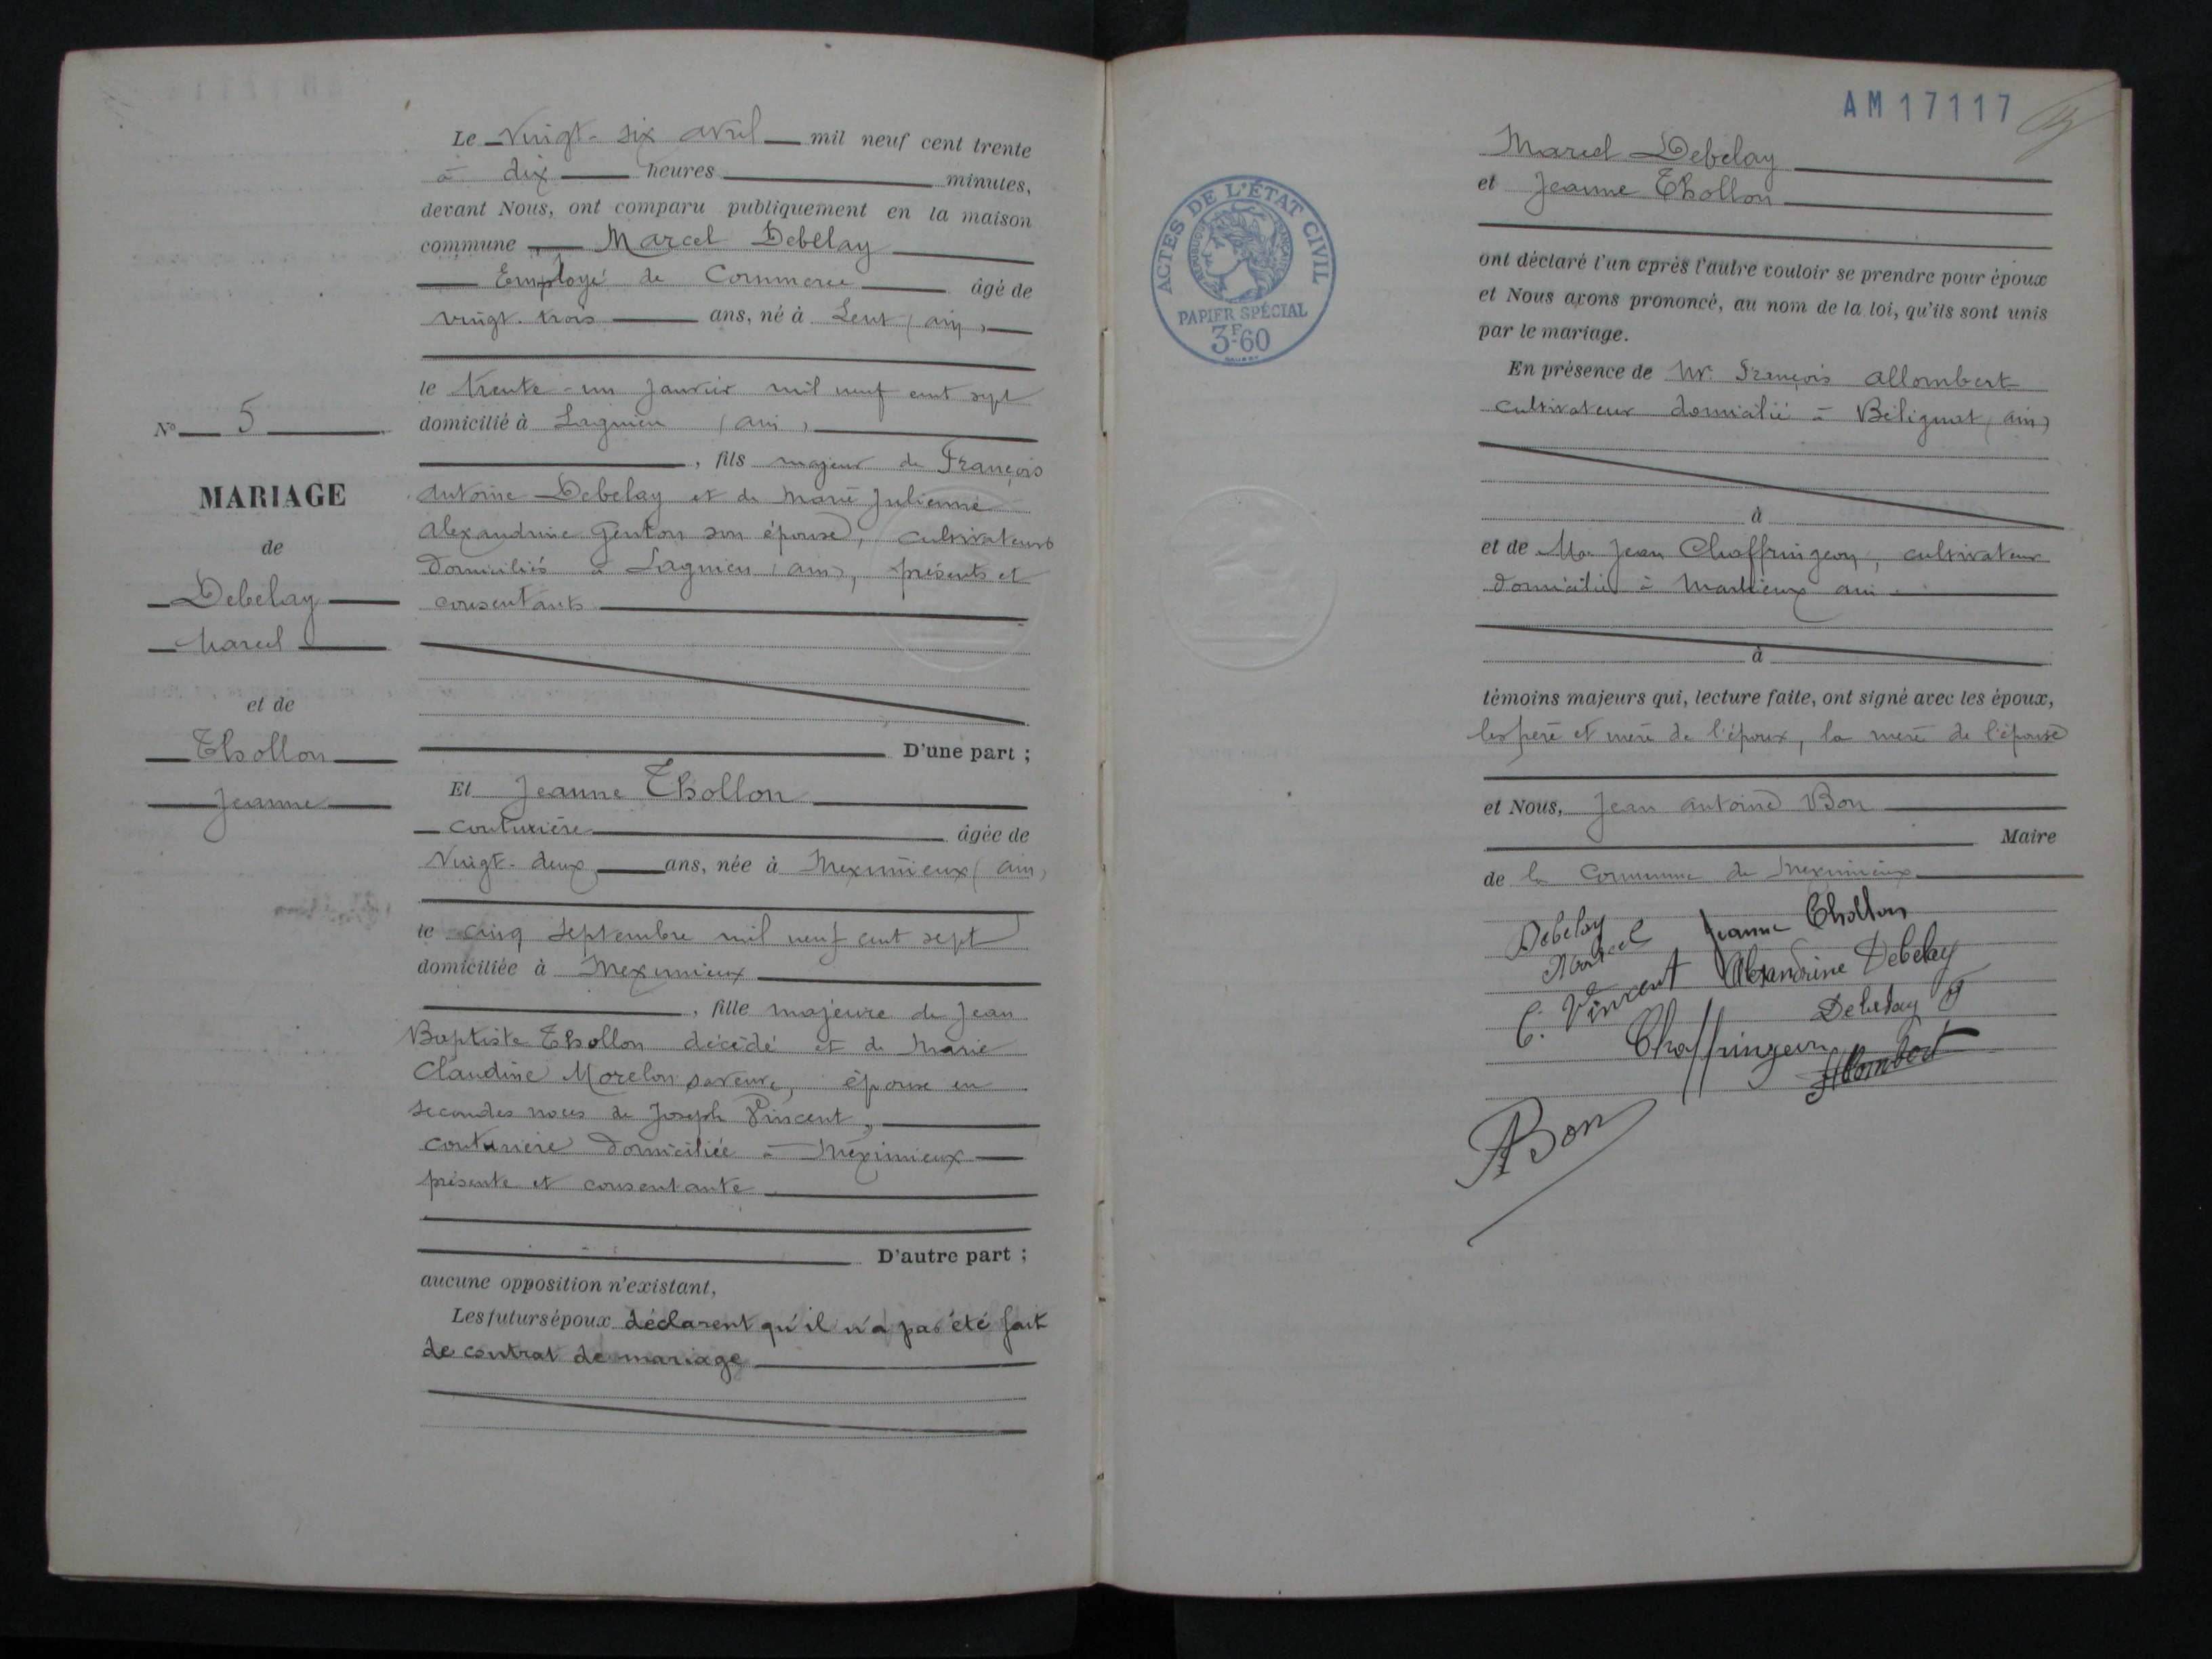 N° 5
MARIAGE
de
Debelay
Marcel
et de
Thollon
Jeanne
Le Vingt-six avril mil neuf cent trente
à dix heures minutes,
devant Nous, ont comparu publiquement en la maison
commune Marcel Debelay
Employé de Commerce âgé de
vingt-trois ans, né à Lent (ain)
le trente-un janvier mil neuf cent sept
domicilié à Lagnieu (ain),
, fils majeur de François
Antoine Debelay et de Marie Julienne
Alexandrine Genton son épouse, cultivateurs
domiciliés à Lagnieu (ain), présents et
consentants
D'une part ;
Et Jeanne Thollon
couturière âgée de
Vingt-deux ans, née à Meximieux (ain)
le cinq Septembre mil neuf cent sept
domiciliée à Meximieux
, fille majeure de Jean
Baptiste Thollon décédé et de Marie
Claudine Morelon sa veuve, épouse en
secondes noces de Joseph Vincent,
couturière domiciliée à Meximieux
présente et consentante
D'autre part ;
aucune opposition n'existant,
Les futurs époux déclarent qu'il n'a pas été fait
de contrat de mariage
AM17117
ACTES DE L'ÉTAT CIVIL
RÉPUBLIQUE FRANÇAISE
PAPIER SPÉCIAL
3F60
Marcel Debelay
et Jeanne Thollon
ont déclaré l'un après l'autre vouloir se prendre pour époux
et Nous avons prononcé, au nom de la loi, qu'ils sont unis
par le mariage.
En présence de Mr. François Allombert
cultivateur domicilié à Bélignat (ain)
à
et de Mr Jean Chaffringeon, cultivateur
domicilié à Marlieux ain
à
témoins majeurs qui, lecture faite, ont signé avec les époux,
les père et mère de l'époux, la mère de l'épouse
et Nous, Jean Antoine Bon
Maire
de la Commune de Meximieux
Debelay
Marcel
Jeanne Thollon
C. Vincent
Alexandrine Debelay
Debelay F
Chaffringeon
Allombert
ABon